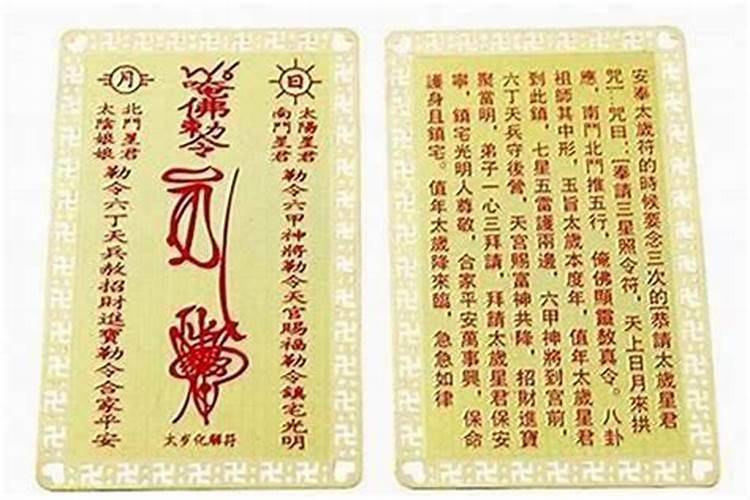 日
太陽星君
南鬥星君
勒令六甲神將勒令天官賜福勒令鎮宅光明
唵佛勅令
太岁化解符
月
北鬥星君
太陰娘娘
勒令六丁天兵赦招財進寶勒令合家平安
安奉太歲符的時候要念三次的[恭請太歲星君
咒]…咒曰:[奉請三星照令符,天上日月來拱
應,南鬥北鬥推五行,俺佛顯靈敫真令。八卦
祖師其中形,玉旨太歲本度年,值年太歲星君
到此鎮,七星五雷護兩邊,六甲神將到宮前,
六丁天兵守後營,天宮賜富神共降,招財進寶
聚當明,弟子一心三拜請,拜請太歲星君保安
寧,鎮宅光明人尊敬,合家平安萬事興,保命
護身且鎮宅。值年太歲降來臨,急急如律